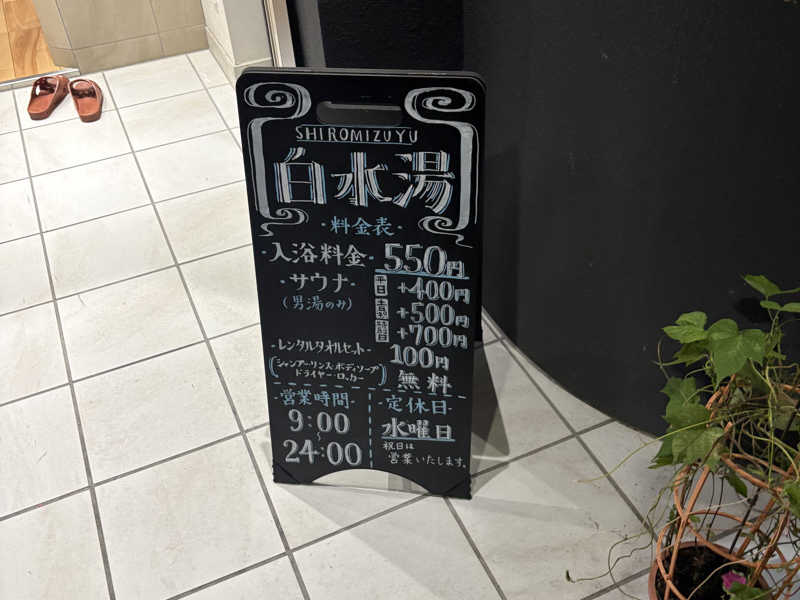 SHIROMIZUYU
白水湯
-料金表-
入浴料金- 550円
-サウナ- 平日 +400円
(男湯のみ) 土日祝 +500円
特定日 +700円
-レンタルタオルセット- 100円
(シャンプー・リンス・ボディソープ
ドライヤー・ロッカー) 無料
-営業時間-
9:00
~
24:00
-定休日-
水曜日
祝日は
営業いたします。